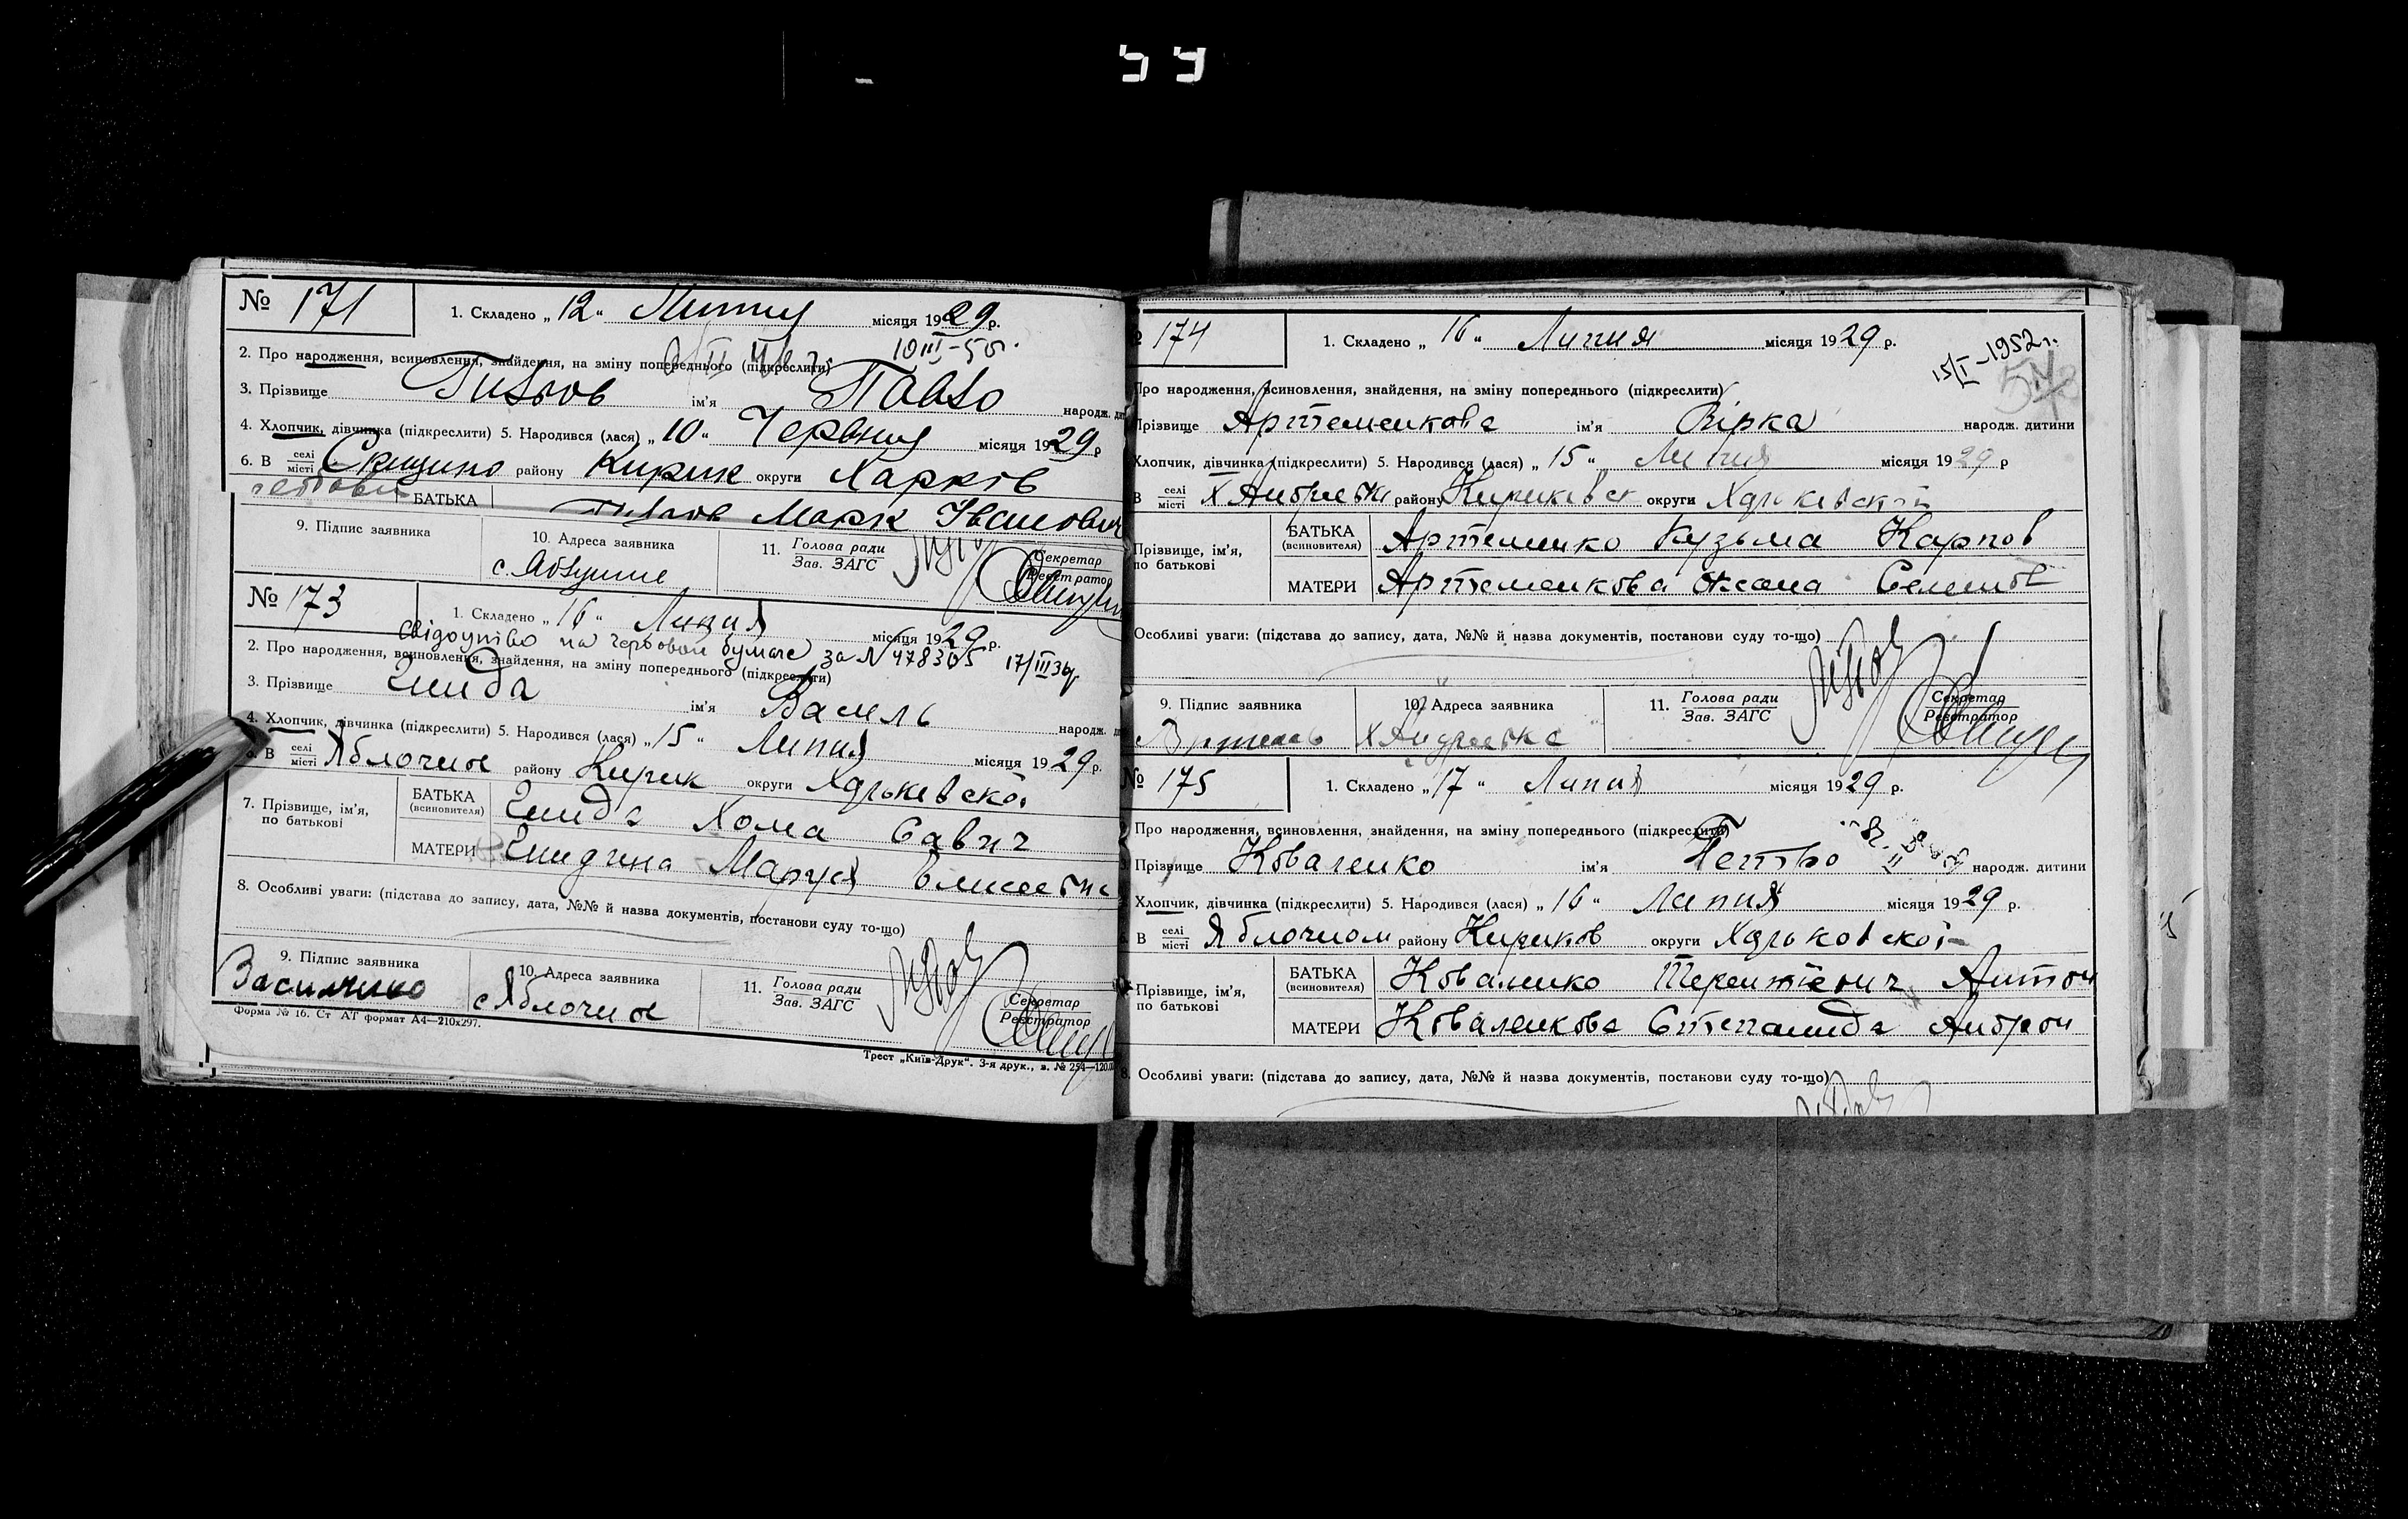 № 171
1. Складено „ 12 “ Липня місяця 1929 р.
10 III-55.
2. Про народження, всиновлення, знайдення, на зміну попереднього (підкреслити)
3. Прізвище ім'я Павло народж.
4. Хлопчик, дівчинка (підкреслити) 5. Народився (лася) „ 10 “ Червня місяця 1929 р
6. В селі місті району Кирик округи Харків
БАТЬКА Марк Іванович
9. Підпис заявника 10. Адреса заявника 11. Голова ради Зав. ЗАГС Секретар Реєстратор
№ 173
1. Складено „ 16 “ Липня місяця 1929 р.
за N 478305 17/III
2. Про народження, всиновлення, знайдення, на зміну попереднього (підкреслити)
3. Прізвище Гнида ім'я Василь народж.
4. Хлопчик, дівчинка (підкреслити) 5. Народився (лася) „ 15 “ Липня місяця 1929 р.
6. В селі місті Яблочне району Кирик округи Харькевскої
7. Прізвище, ім'я, по батькові
БАТЬКА (всиновителя) Гнида Хома Савич
МАТЕРИ Гнидина Маруся
8. Особливі уваги: (підстава до запису, дата, №№ й назва документів, постанови суду то-що)
9. Підпис заявника 10. Адреса заявника 11. Голова ради Зав. ЗАГС Секретар Реєстратор
с Яблочне
Форма № 16. Ст АТ формат А4—210х297.
Трест „Київ-Друк“. 3-я друк., в. № 254—120.
174
1. Складено „ 16 “ Липня місяця 1929 р.
15/I-1952 г.
Про народження, всиновлення, знайдення, на зміну попереднього (підкреслити)
Прізвище Артеменкова ім'я Вірка народж. дитини
Хлопчик, дівчинка (підкреслити) 5. Народився (лася) „ 15 “ Липня місяця 1929 р
В селі місті Х Андреевк району Кириковск округи Харькевскої
Прізвище, ім'я, по батькові
БАТЬКА (всиновителя) Артеменко Кузьма Карпов
МАТЕРИ Артеменкова Оксана Семенов
Особливі уваги: (підстава до запису, дата, №№ й назва документів, постанови суду то-що)
9. Підпис заявника 10. Адреса заявника 11. Голова ради Зав. ЗАГС Секретар Реєстратор
Х Андреевка
№ 175
1. Складено „ 17 “ Липня місяця 1929 р.
Про народження, всиновлення, знайдення, на зміну попереднього (підкреслити)
Прізвище Коваленко ім'я Петро народж. дитини
Хлопчик, дівчинка (підкреслити) 5. Народився (лася) „ 16 “ Липня місяця 1929 р.
В селі місті Яблочном району Кириков округи Харьковскої
Прізвище, ім'я, по батькові
БАТЬКА (всиновителя) Коваленко Терентієвич Антон
МАТЕРИ Коваленкова Степанида Андрон
8. Особливі уваги: (підстава до запису, дата, №№ й назва документів, постанови суду то-що)